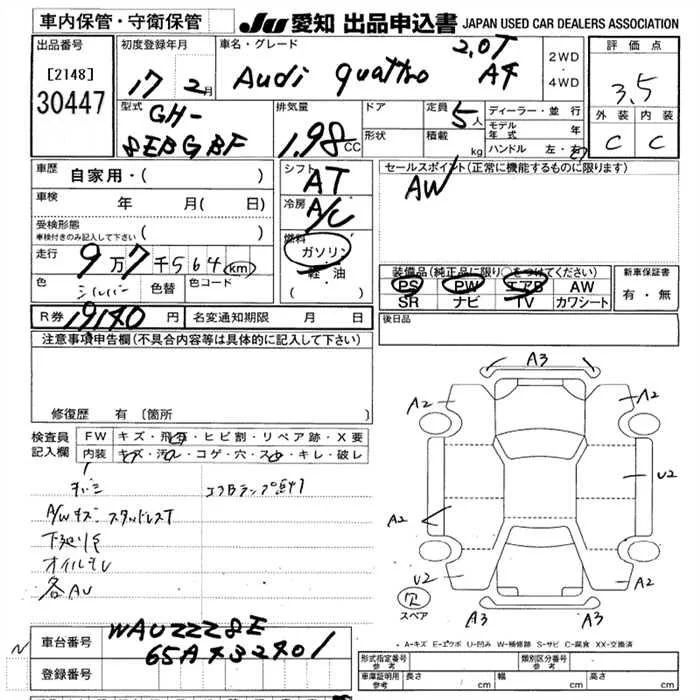 車内保管・守衛保管
JU 愛知 出品申込書 JAPAN USED CAR DEALERS ASSOCIATION
出品番号
[2148]
30447
初度登録年月
17年 2月
車名・グレード
Audi quattro 2.0T A4
2WD
・
4WD
評価点
3.5
外装 内装
C C
型式
GH-
8EBGBF
排気量
1.98 CC
ドア
形状
定員 5人
積載 kg
ディーラー・並行
モデル年式 年
ハンドル 左・右
車歴 自家用・( )
車検 年 月( 日)
受検形態
車検付きのみ記入して下さい ( )
走行 9万7千564 km
色 シルバー 色替 色コード
シフト AT
冷房 A/C
燃料 ガソリン
・
軽・油
( )
セールスポイント(正常に機能するものに限ります)
AW
装備品(純正品に限り○をつけてください)
PS PW エアB AW
SR ナビ TV カワシート
新車保証書
有・無
R券 19140 円 名変通知期限 月 日
後日品
注意事項申告欄(不具合内容等は具体的に記入して下さい)
修復歴 有 〔箇所
検査員
記入欄
FW キズ・飛石・ヒビ割・リペア跡・X要
内装 キズ・汚れ・コゲ・穴・スレ・キレ・破レ
エアBランプ点灯
A/Wキズ スタッドレスT
下廻りサビ
オイルモレ
各AU
A3
A2 A2
U2
A2
U2 A2
A3 A3
欠
スペア
A-キズ E-エクボ U-凹み W-補修跡 S-サビ C-腐食 XX-交換済
車台番号 WAUZZZ8E
65A432401
登録番号
形式指定番号
参考
類別区分番号
参考
車庫証明用
参考
長さ cm 幅 cm 高さ cm